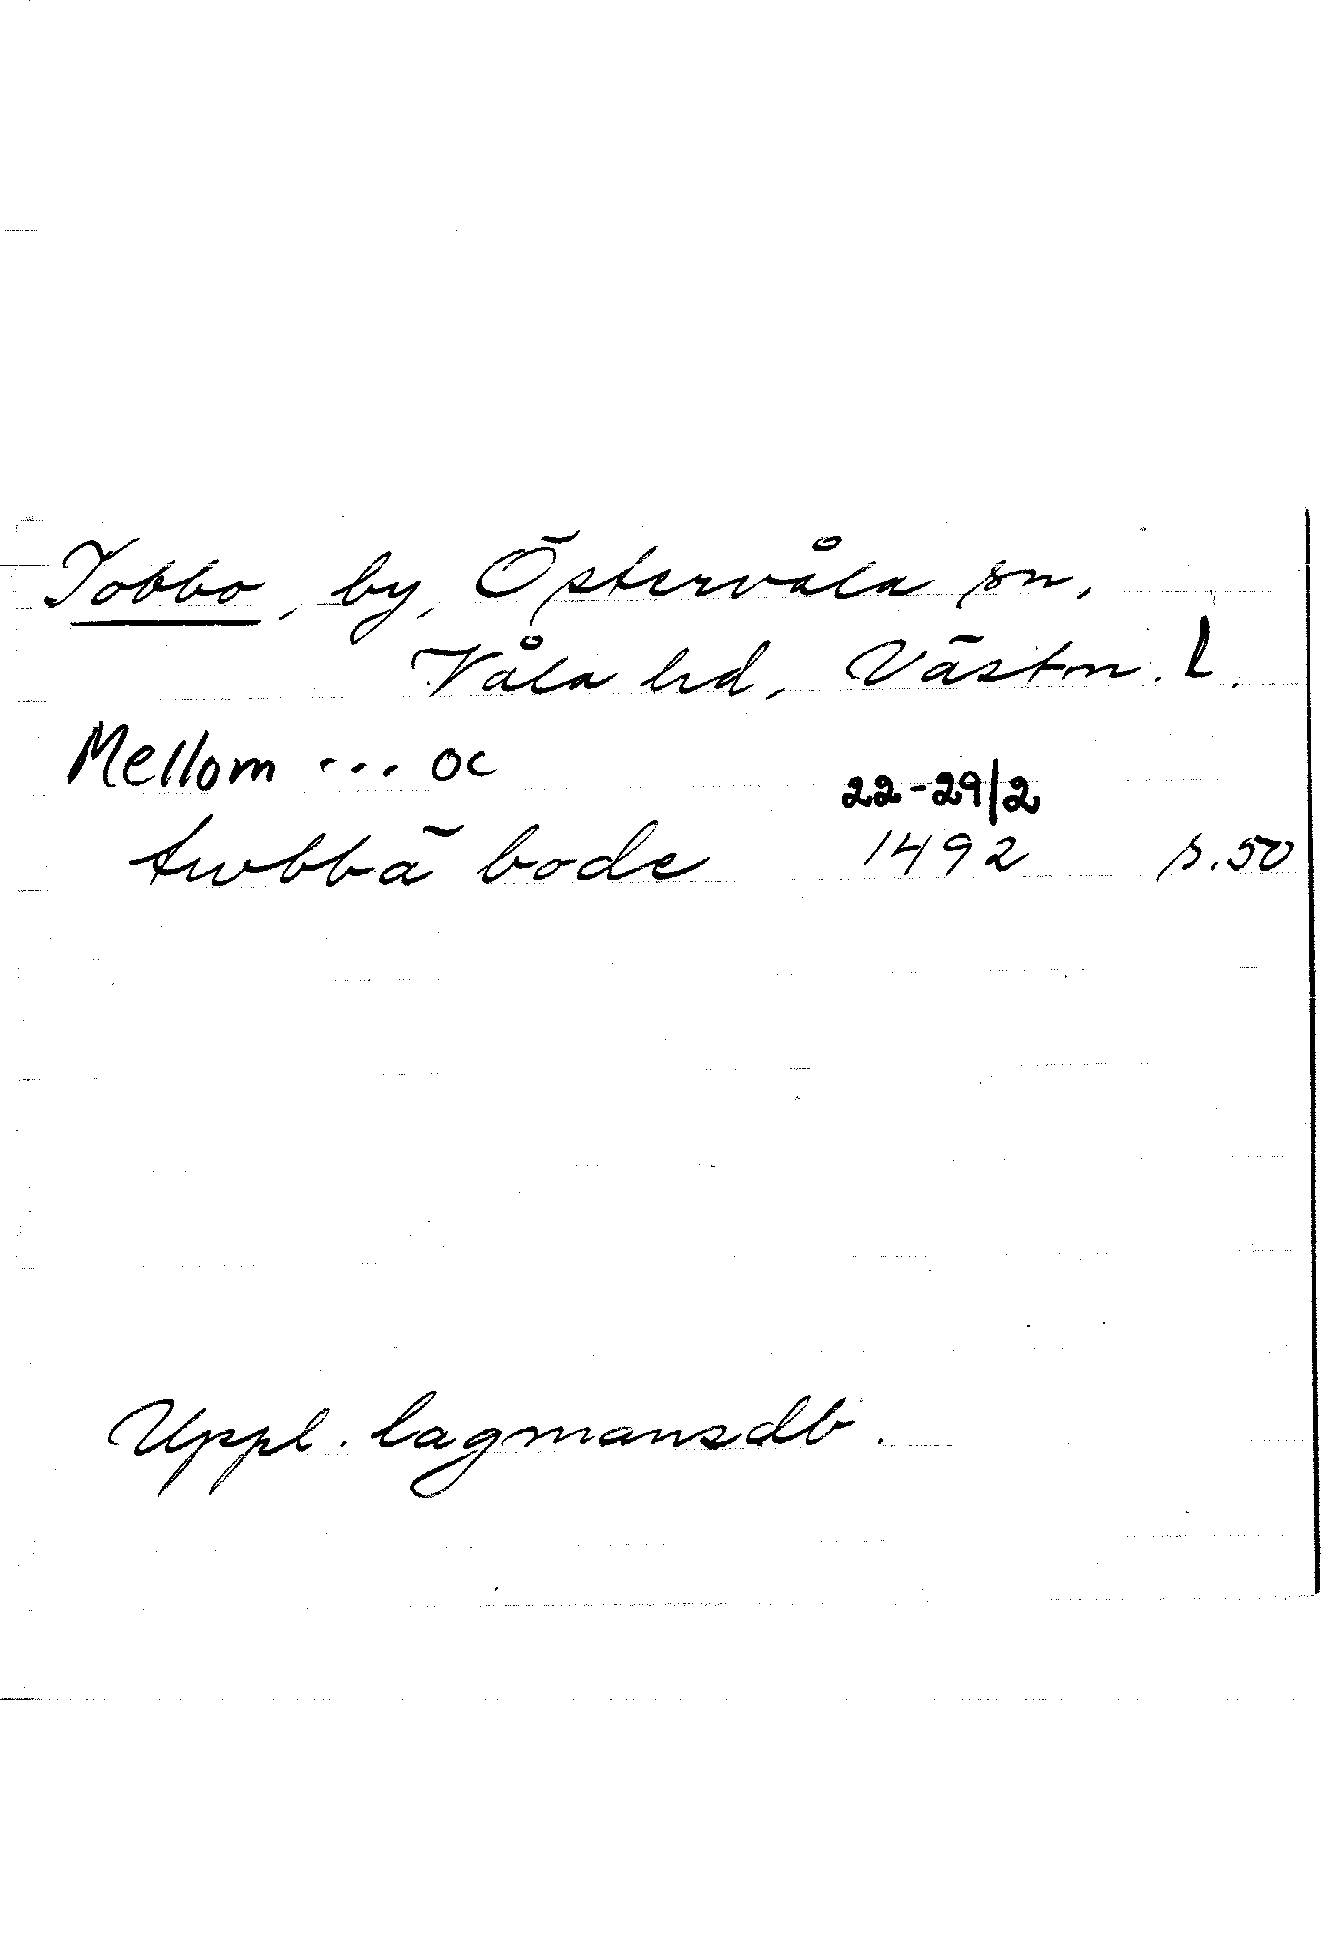 Tobbo, by, Östervåla sn,
Våla hd, Västm. l.
Mellom ... oc
22-29/2
twbbä bode 1492 s. 50
Uppl. lagmansdb.